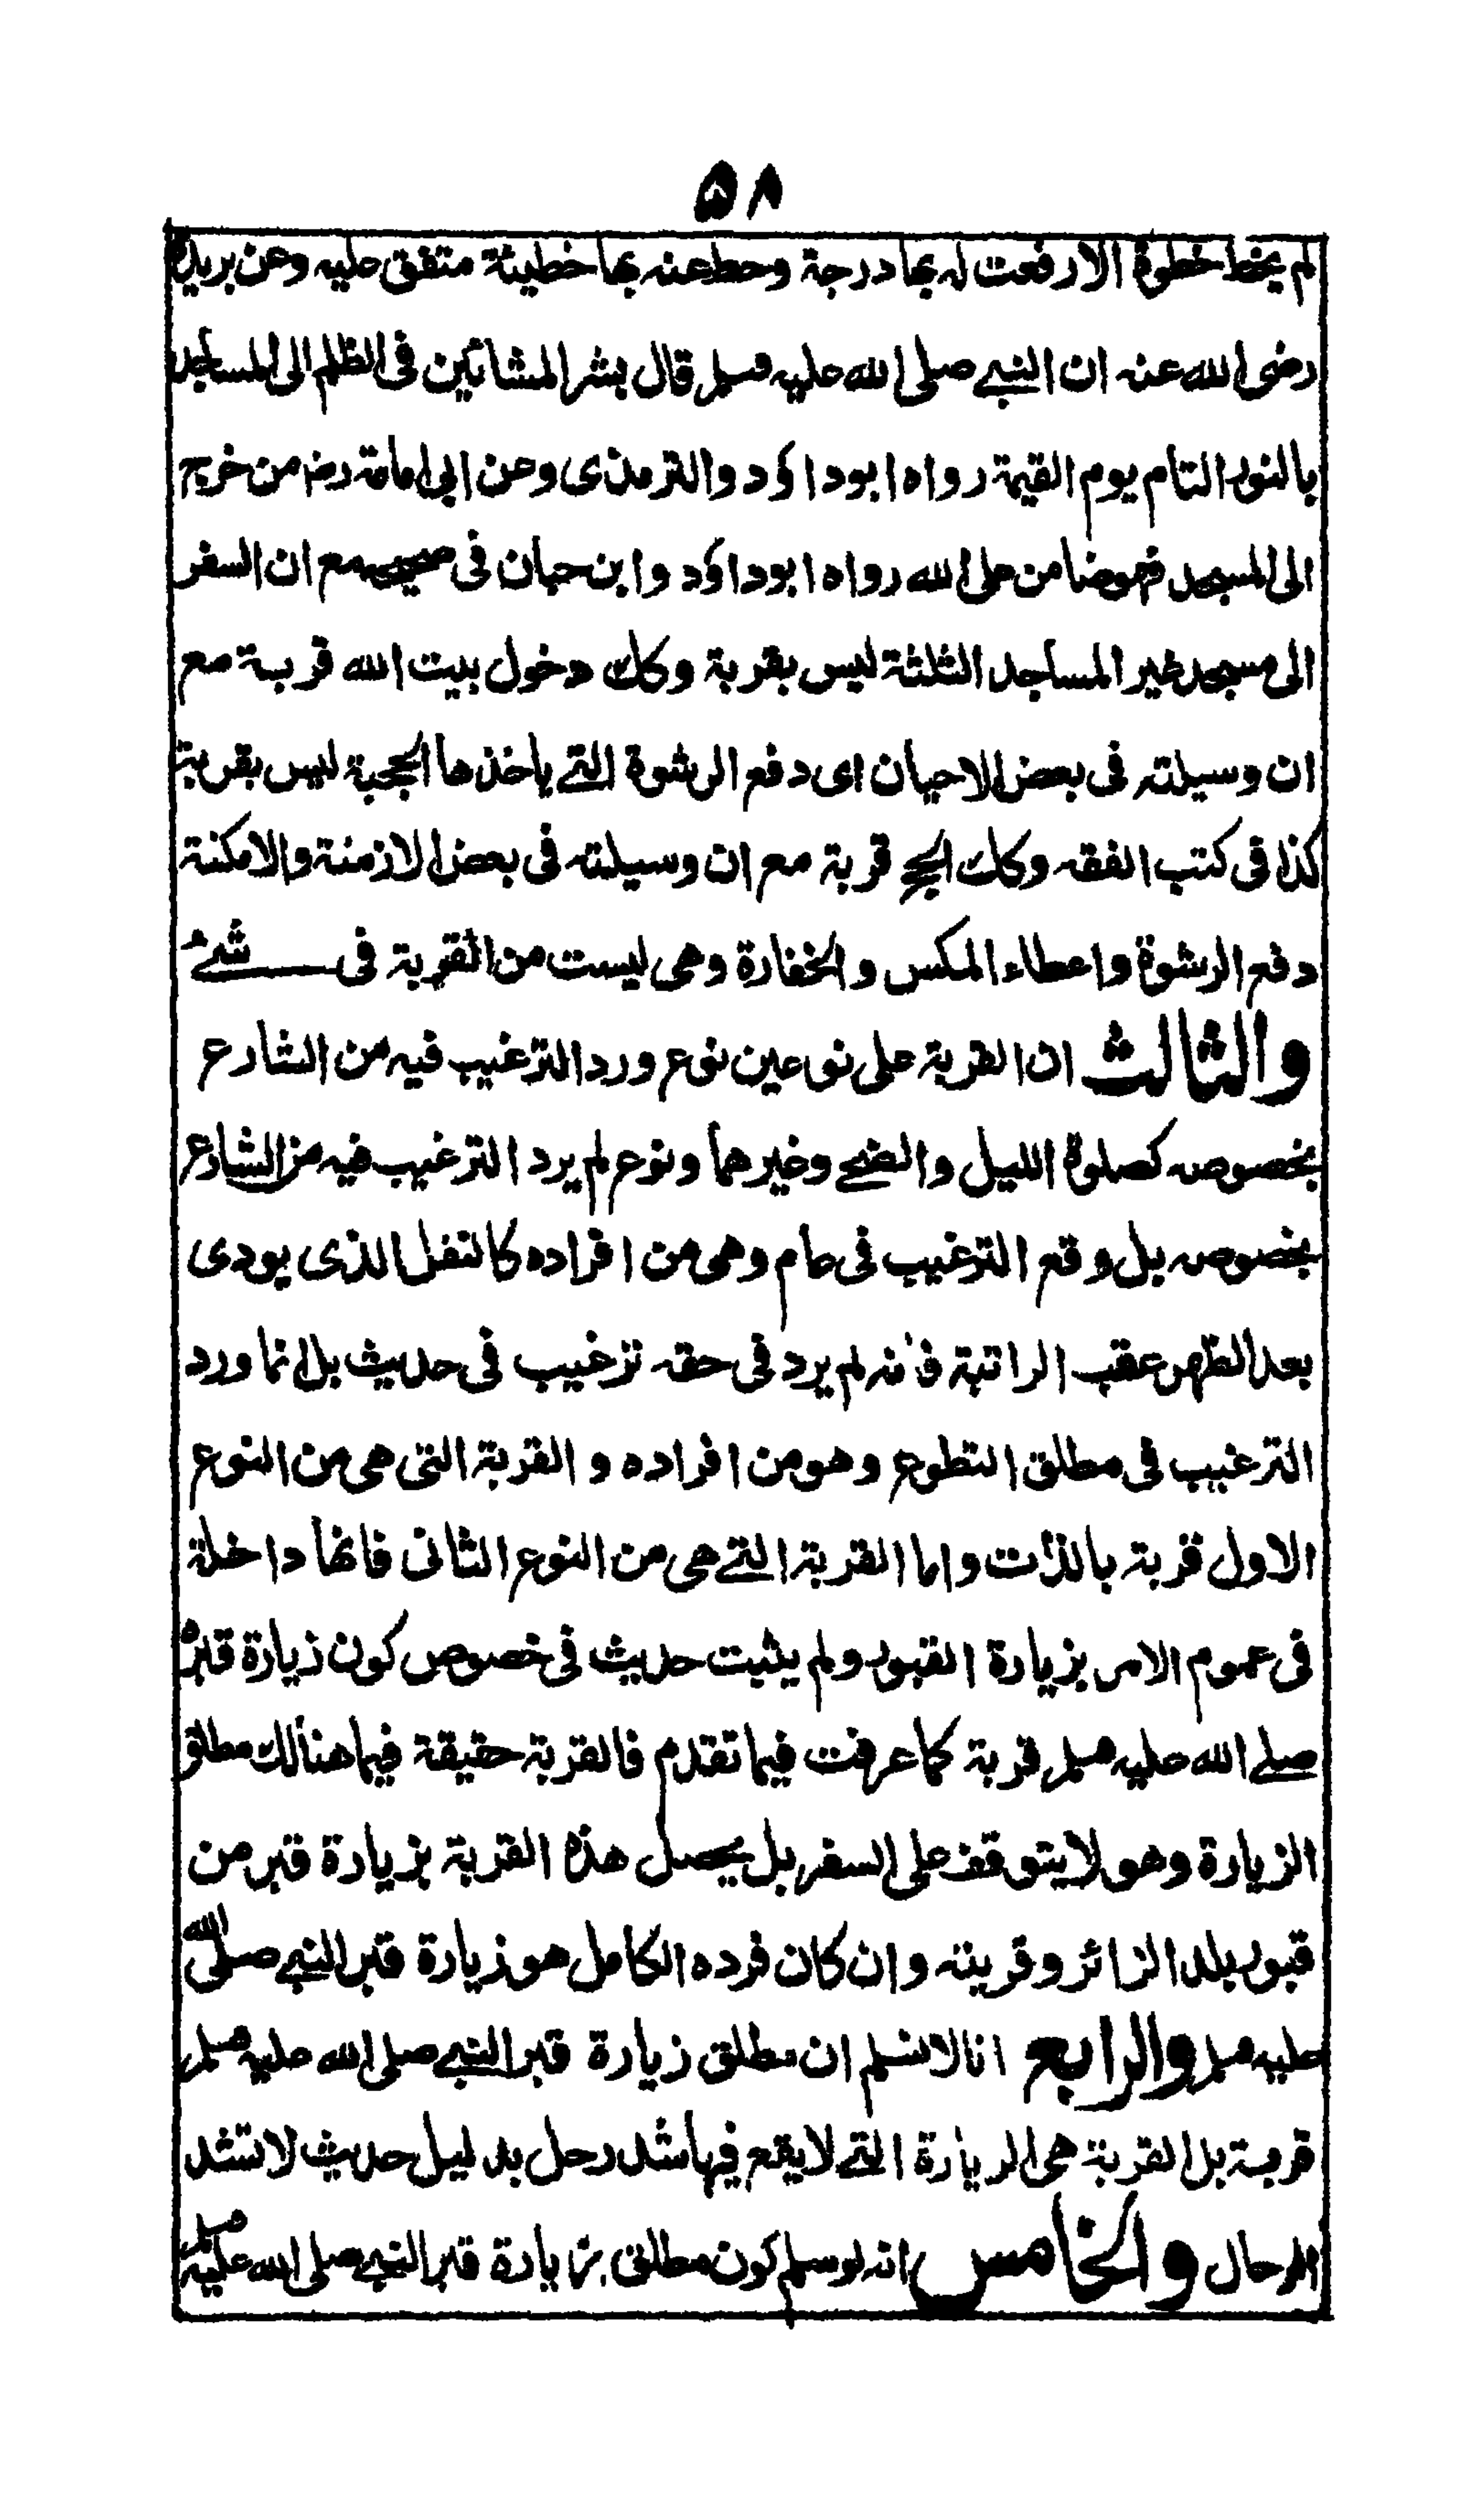 ۵۸
لم يخط خطوة الا رفعت له بها درجة وحط عنه بها خطيئة متفق عليه وعن بريدة
رضى الله عنه ان النبي صلى الله عليه وسلم قال بشر المشائين في الظلم الى المساجد
بالنور التام يوم القيمة رواه ابو داؤد والترمذى وعن ابي امامة رضه من خرج
الى المسجد فهو ضامن على الله رواه ابو داؤد وابن حبان فى صحيحه مع ان السفر
الى مسجد غير المساجد الثلثة ليس بقربة وكك دخول بيت الله قربة مع
ان وسيلته فى بعض الاحيان اى دفع الرشوة التي ياخذها الحجبة ليس بقربة
كذا فى كتب الفقه وكك الحج قربة مع ان وسيلته فى بعض الازمنة والامكنة
دفع الرشوة واعطاء المكس والخفارة وهى ليست من القربة فى شئ
والثالث ان القربة على نوعين نوع ورد الترغيب فيه من الشارع
بخصوصه كصلوة الليل والضحى وغيرهما ونوع لم يرد الترغيب فيه من الشارع
بخصوصه بل وقع الترغيب فى عام وهو من افراده كالنفل الذى يودى
بعد الظهر عقب الراتبة فانه لم يرد فى حقه ترغيب فى حديث بل انما ورد
الترغيب فى مطلق التطوع وهو من افراده و القربة التى هى من النوع
الاول قربة بالذات واما القربة التي هى من النوع الثانى فانها داخلة
فى عموم الامر بزيارة القبور ولم يثبت حديث فى خصوص كون زيارة قبره
صلے الله عليه وسلم قربة كما عرفت فيما تقدم فالقربة حقيقة فيما هنالك مطلق
الزيارة وهو لا يتوقف على السفر بل يحصل هذه القربة بزيارة قبر من
قبور بلد الزائر وقريته وان كان فرده الكامل هو زيارة قبر النبي صلى الله
عليه وسلم والرابع انا لا نسلم ان مطلق زيارة قبر النبي صلى الله عليه وسلم
قربة بل القربة هى الزيارة التي لا يقع فيها شد رحل بدليل حديث لا تشد
الرحال والخامس انه لو سلم كون مطلق زيارة قبر النبي صلى الله عليه وسلم